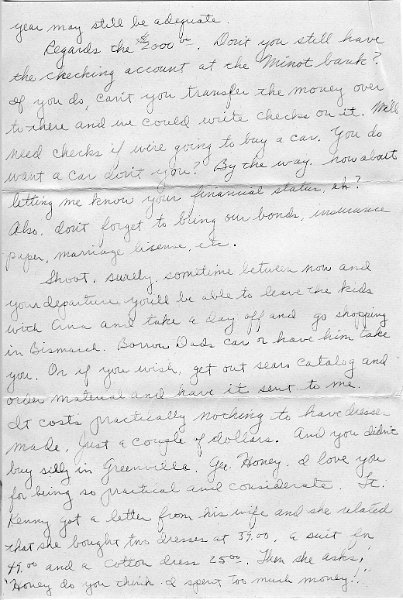 year may still be adequate.
Regards the $2000 00. Don't you still have
the checking account at the Minot bank?
If you do, can't you transfer the money over
to there and we could write checks on it. We'll
need checks if we're going to buy a car. You do
want a car don't you? By the way. how about
letting me know your financial status, ah?
Also. don't forget to bring our bonds, insurance
paper, marriage lisense, etc.
Shoot. surely. sometime between now and
your departure you'll be able to leave the kids
with and take a day off and go shopping
in Bismarck. Borrow Dads car or have him take
you. Or if you wish, get out sears catalog and
order material and have it sent to me.
It costs practically nothing to have dresses
made. Just a couple of dollars. And you didn't
buy silly in Greenville. Gee Honey. I love you
for being so practical and considerate. Lt.
Kenny got a letter from his wife and she related
that she bought two dresses at 39.00, a suit in
49.00 and a cotton dress 25 00. Then she asks,
"Honey do you think I spent too much money!"